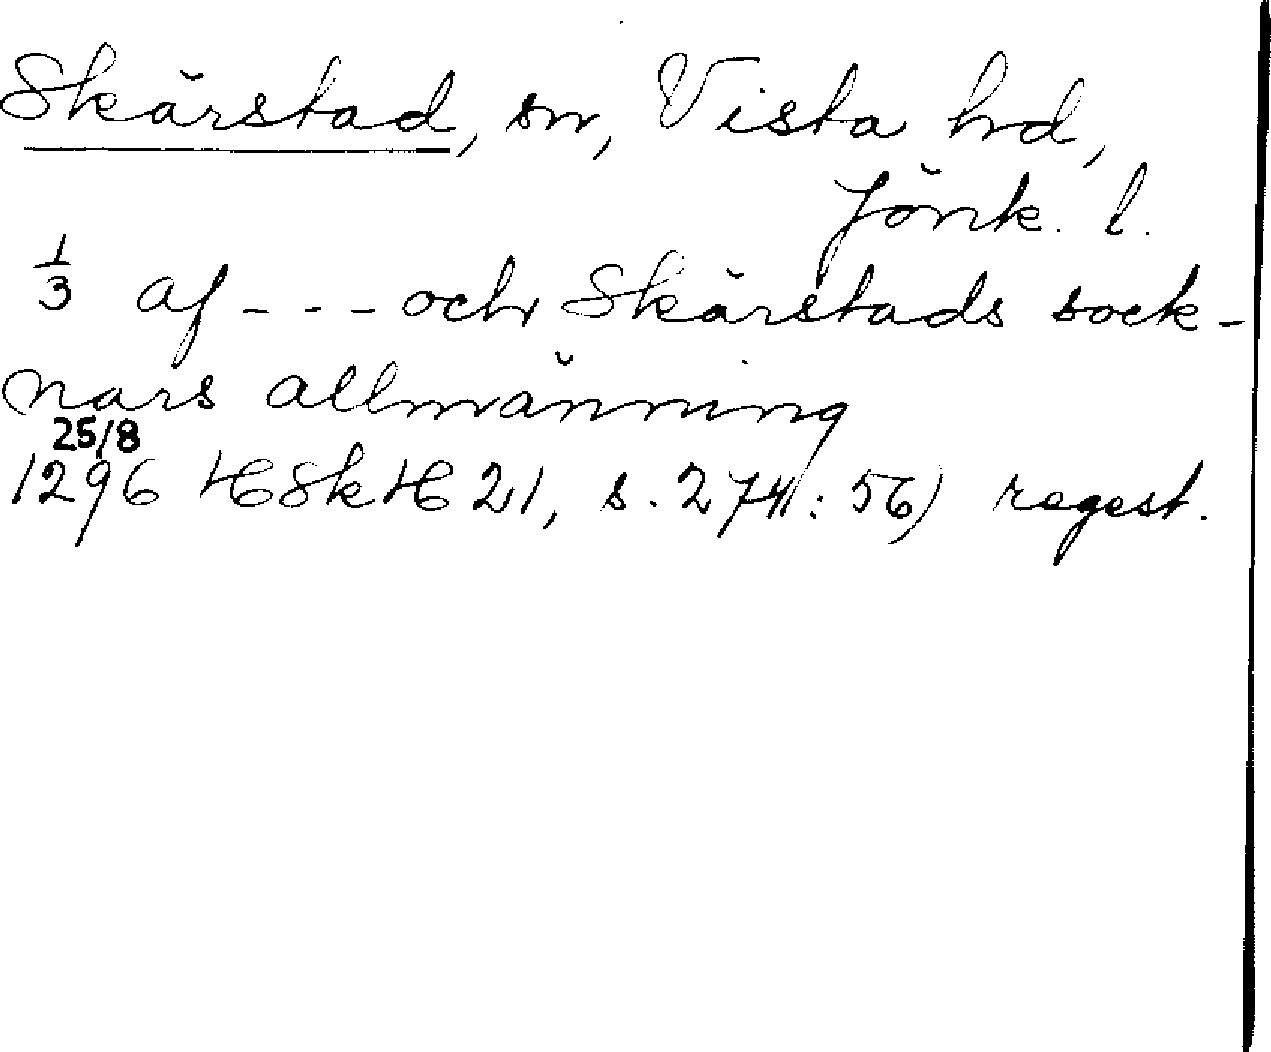 Skärstad, sn, Vista hd,
Jönk. l.
1/3 af - - - och Skärstads sock-
nars allmänning
25/8
1296 HSkH 21, s. 274: 56) regest.